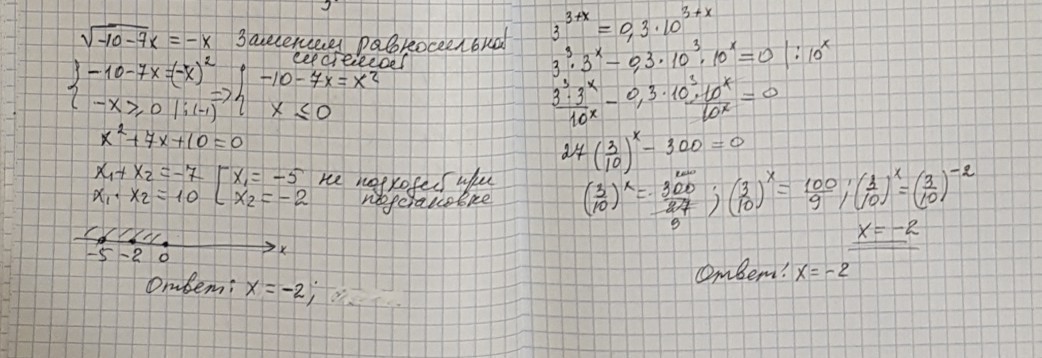 √-10-7x = -x Заменим равносильной
системой
{ -10-7x=(-x)² => { -10-7x=x²
-x ≥ 0 |:(-1) x ≤ 0
x²+7x+10=0
x₁+x₂=-7 [ x₁=-5 не подходит при
x₁·x₂=10 [ x₂=-2 подстановке
-5 -2 0 x
Ответ: x=-2;
3^(3+x) = 0,3·10^(3+x)
3³·3^x - 0,3·10³·10^x = 0 |:10^x
3³·3^x/10^x - 0,3·10³·10^x/10^x = 0
27(3/10)^x - 300 = 0
(3/10)^x = 300/27 ; (3/10)^x = 100/9 ; (3/10)^x = (3/10)^-2
100
9
x=-2
Ответ: x=-2